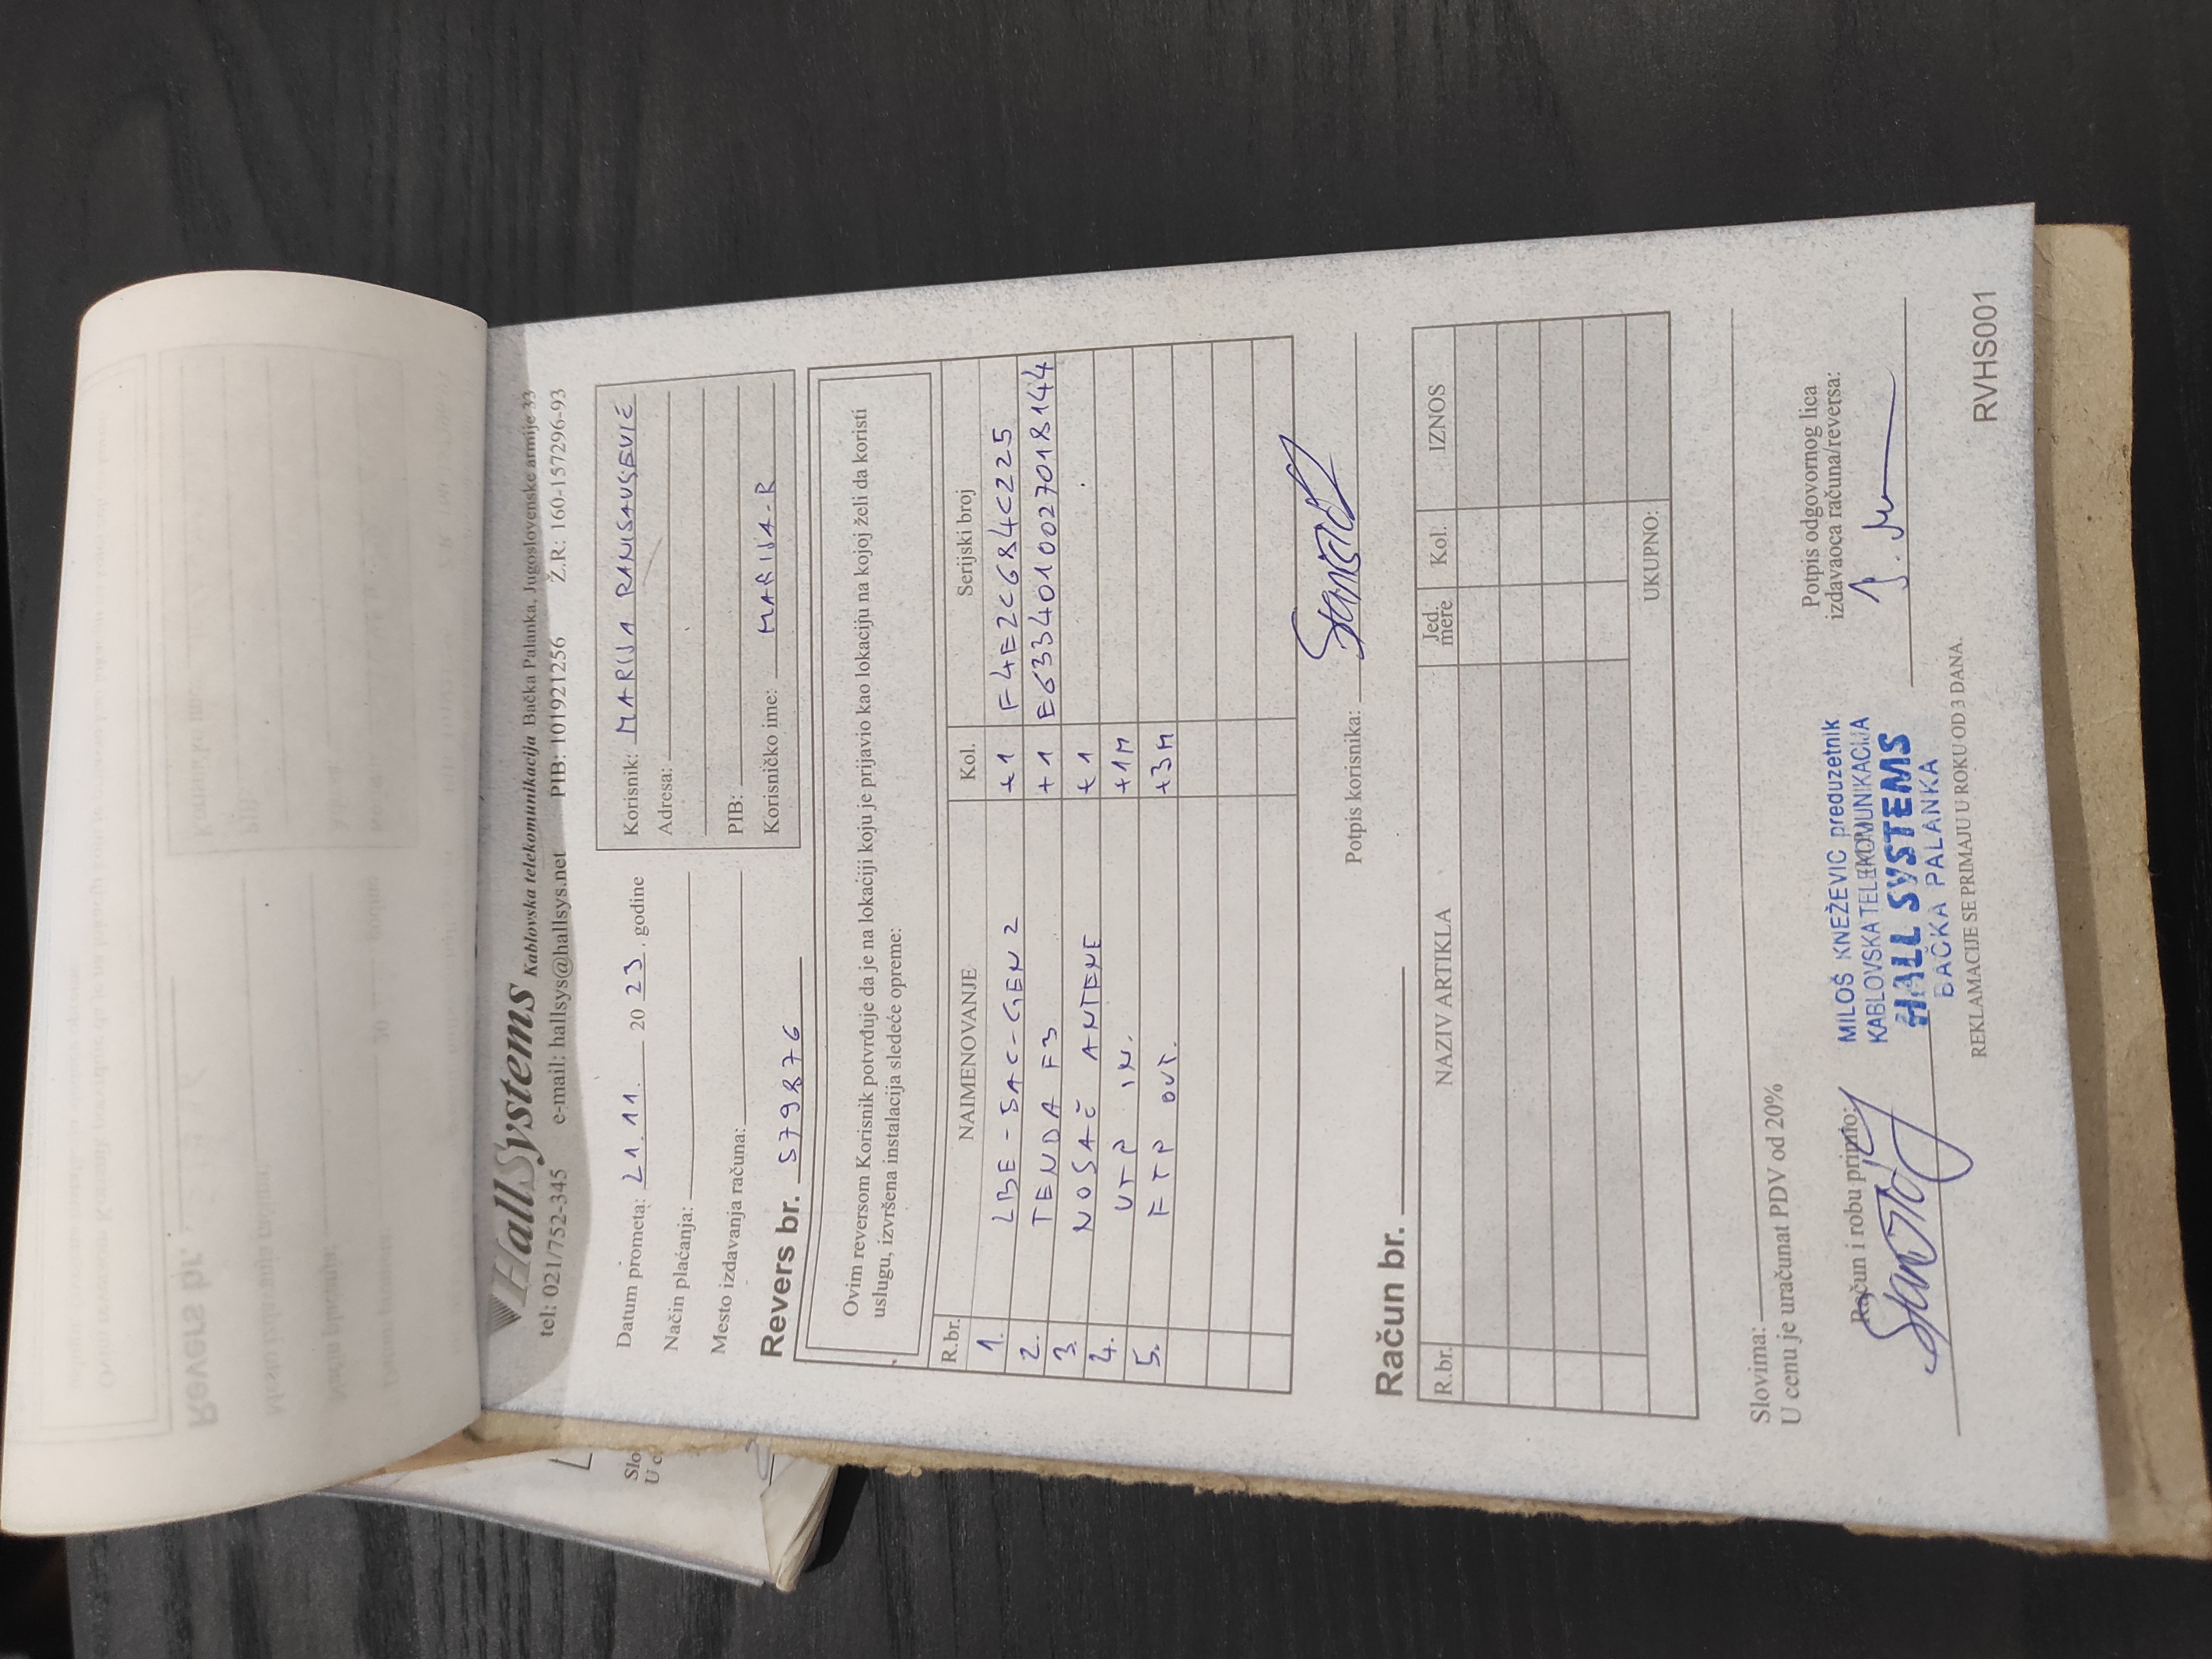 HallSystems Kablovska telekomunikacija Bačka Palanka, Jugoslovenske armije 33
tel: 021/752-345 e-mail: hallsys@hallsys.net PIB: 101921256 Ž.R: 160-157296-93
Datum prometa: 21.11. 20 23. godine
Način plaćanja:
Mesto izdavanja računa:
Revers br. 579876
Korisnik: MARIJA RANISAVLJEVIĆ
Adresa:
PIB:
Korisničko ime: MARIJA-R
Ovim reversom Korisnik potvrđuje da je na lokaciji koju je prijavio kao lokaciju na kojoj želi da koristi
uslugu, izvršena instalacija sledeće opreme:
R.br. NAIMENOVANJE Kol. Serijski broj
1. LBE-5AC-GEN2 +1 F4E2C684C225
2. TENDA F3 +1 E6334010027018144
3. NOSAČ ANTENE +1
4. UTP IN. +1M
5. FTP OUT. +3M
Potpis korisnika:
Račun br.
R.br. NAZIV ARTIKLA Jed. mere Kol. IZNOS
UKUPNO:
Slovima:
U cenu je uračunat PDV od 20%
Račun i robu primio:
MILOŠ KNEŽEVIĆ preduzetnik
KABLOVSKA TELEKOMUNIKACIJA
HALL SYSTEMS
BAČKA PALANKA
Potpis odgovornog lica
izdavaoca računa/reversa:
REKLAMACIJE SE PRIMAJU U ROKU OD 3 DANA.
RVHS001